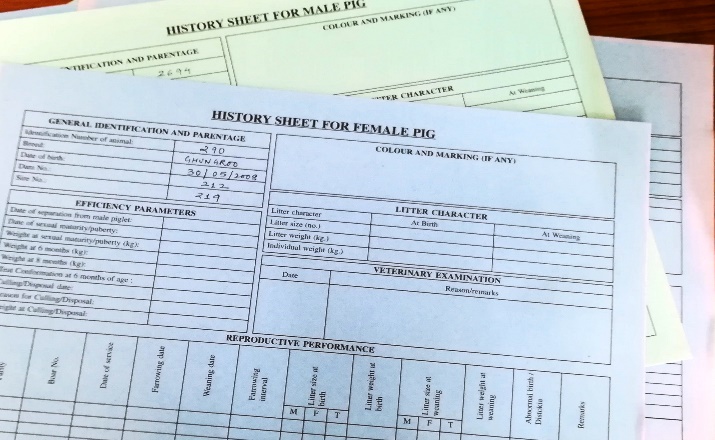 HISTORY SHEET FOR MALE PIG
COLOUR AND MARKING (IF ANY)
AND PARENTAGE
2699
CHARACTER
At Weaning
HISTORY SHEET FOR FEMALE PIG
GENERAL IDENTIFICATION AND PARENTAGE
Identification Number of animal: 290
Breed: GHUNGROO
Date of birth: 30/05/2008
Dam No.: 212
Sire No.: 219
COLOUR AND MARKING (IF ANY)
EFFICIENCY PARAMETERS
Date of separation from male piglet:
Date of sexual maturity/puberty:
Weight at sexual maturity/puberty (kg):
Weight at 6 months (kg):
Weight at 8 months (kg):
Conformation at 6 months of age :
Culling/Disposal date:
for Culling/Disposal:
at Culling/Disposal:
LITTER CHARACTER
Litter character At Birth At Weaning
Litter size (no.)
Litter weight (kg.)
Individual weight (kg.)
VETERINARY EXAMINATION
Date Reason/remarks
REPRODUCTIVE PERFORMANCE
Boar No.
Date of service
Farrowing date
Weaning date
Farrowing interval
Litter size at birth
M F T
Litter weight at birth
Litter size at weaning
M F T
Litter weight at weaning
Abnormal birth / Distokia
Remarks